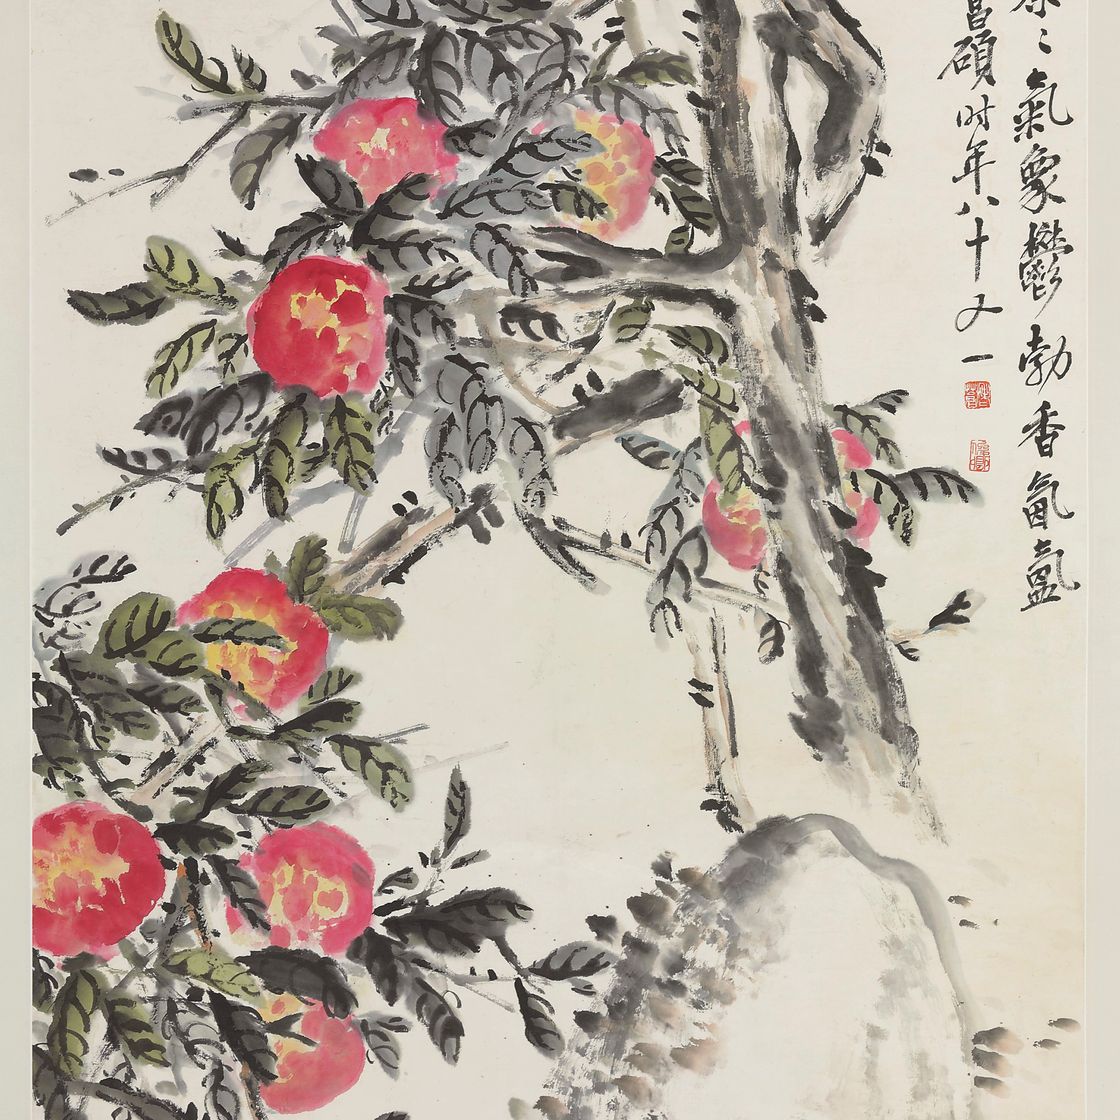 氣象鬱勃香氤氳
昌碩時年八十又一